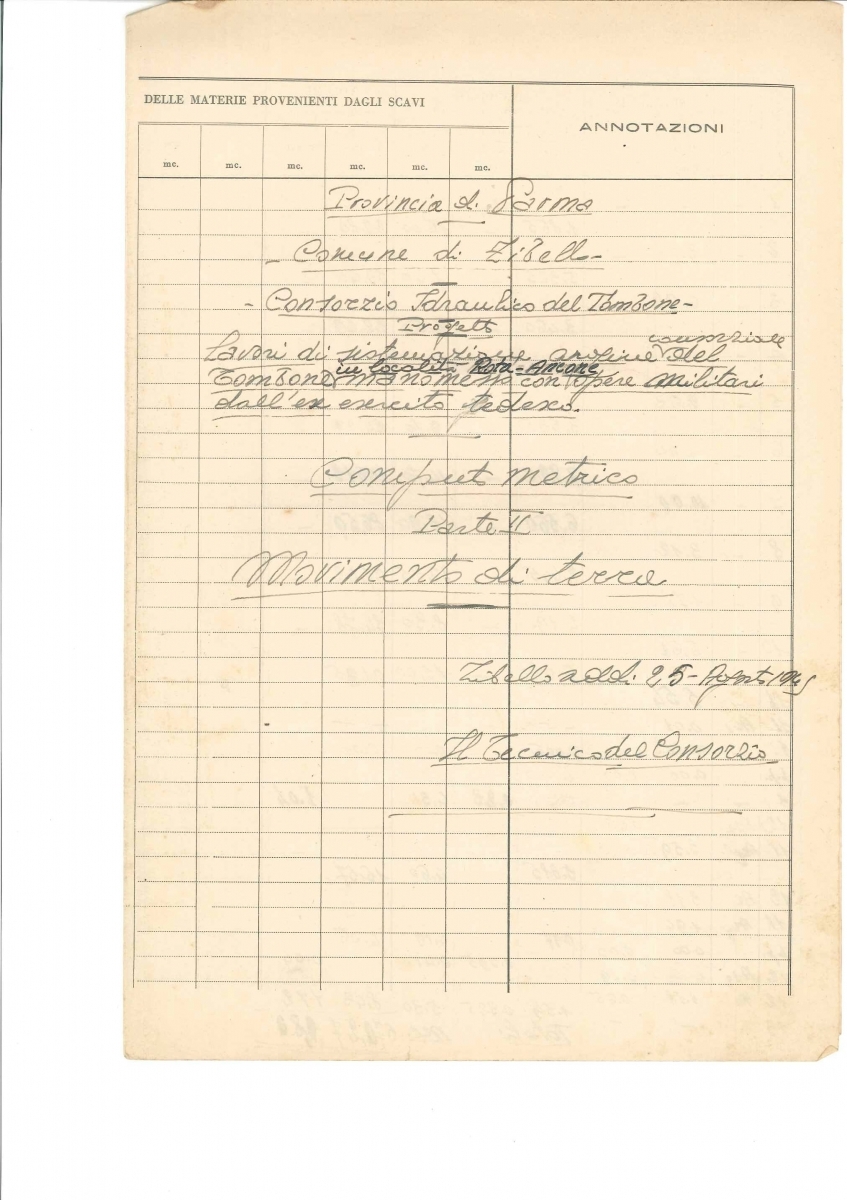 DELLE MATERIE PROVENIENTI DAGLI SCAVI
ANNOTAZIONI
mc. mc. mc. mc. mc. mc.
Provincia di Parma
- Comune di Zibello -
- Consorzio Idraulico del Tombone -
Progetto
consorziale
Lavori di sistemazione argine del
in località Rota-Ancone
Tombone manomesso con opere militari
dall'ex esercito tedesco.
Computo metrico
Parte II
Movimento di terra
Zibello addi 25 - Agosto 1945
Il Tecnico del Consorzio